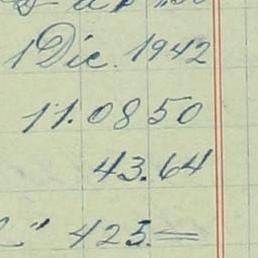 1 Dic. 1942
11.0850
43.64
" 425.=